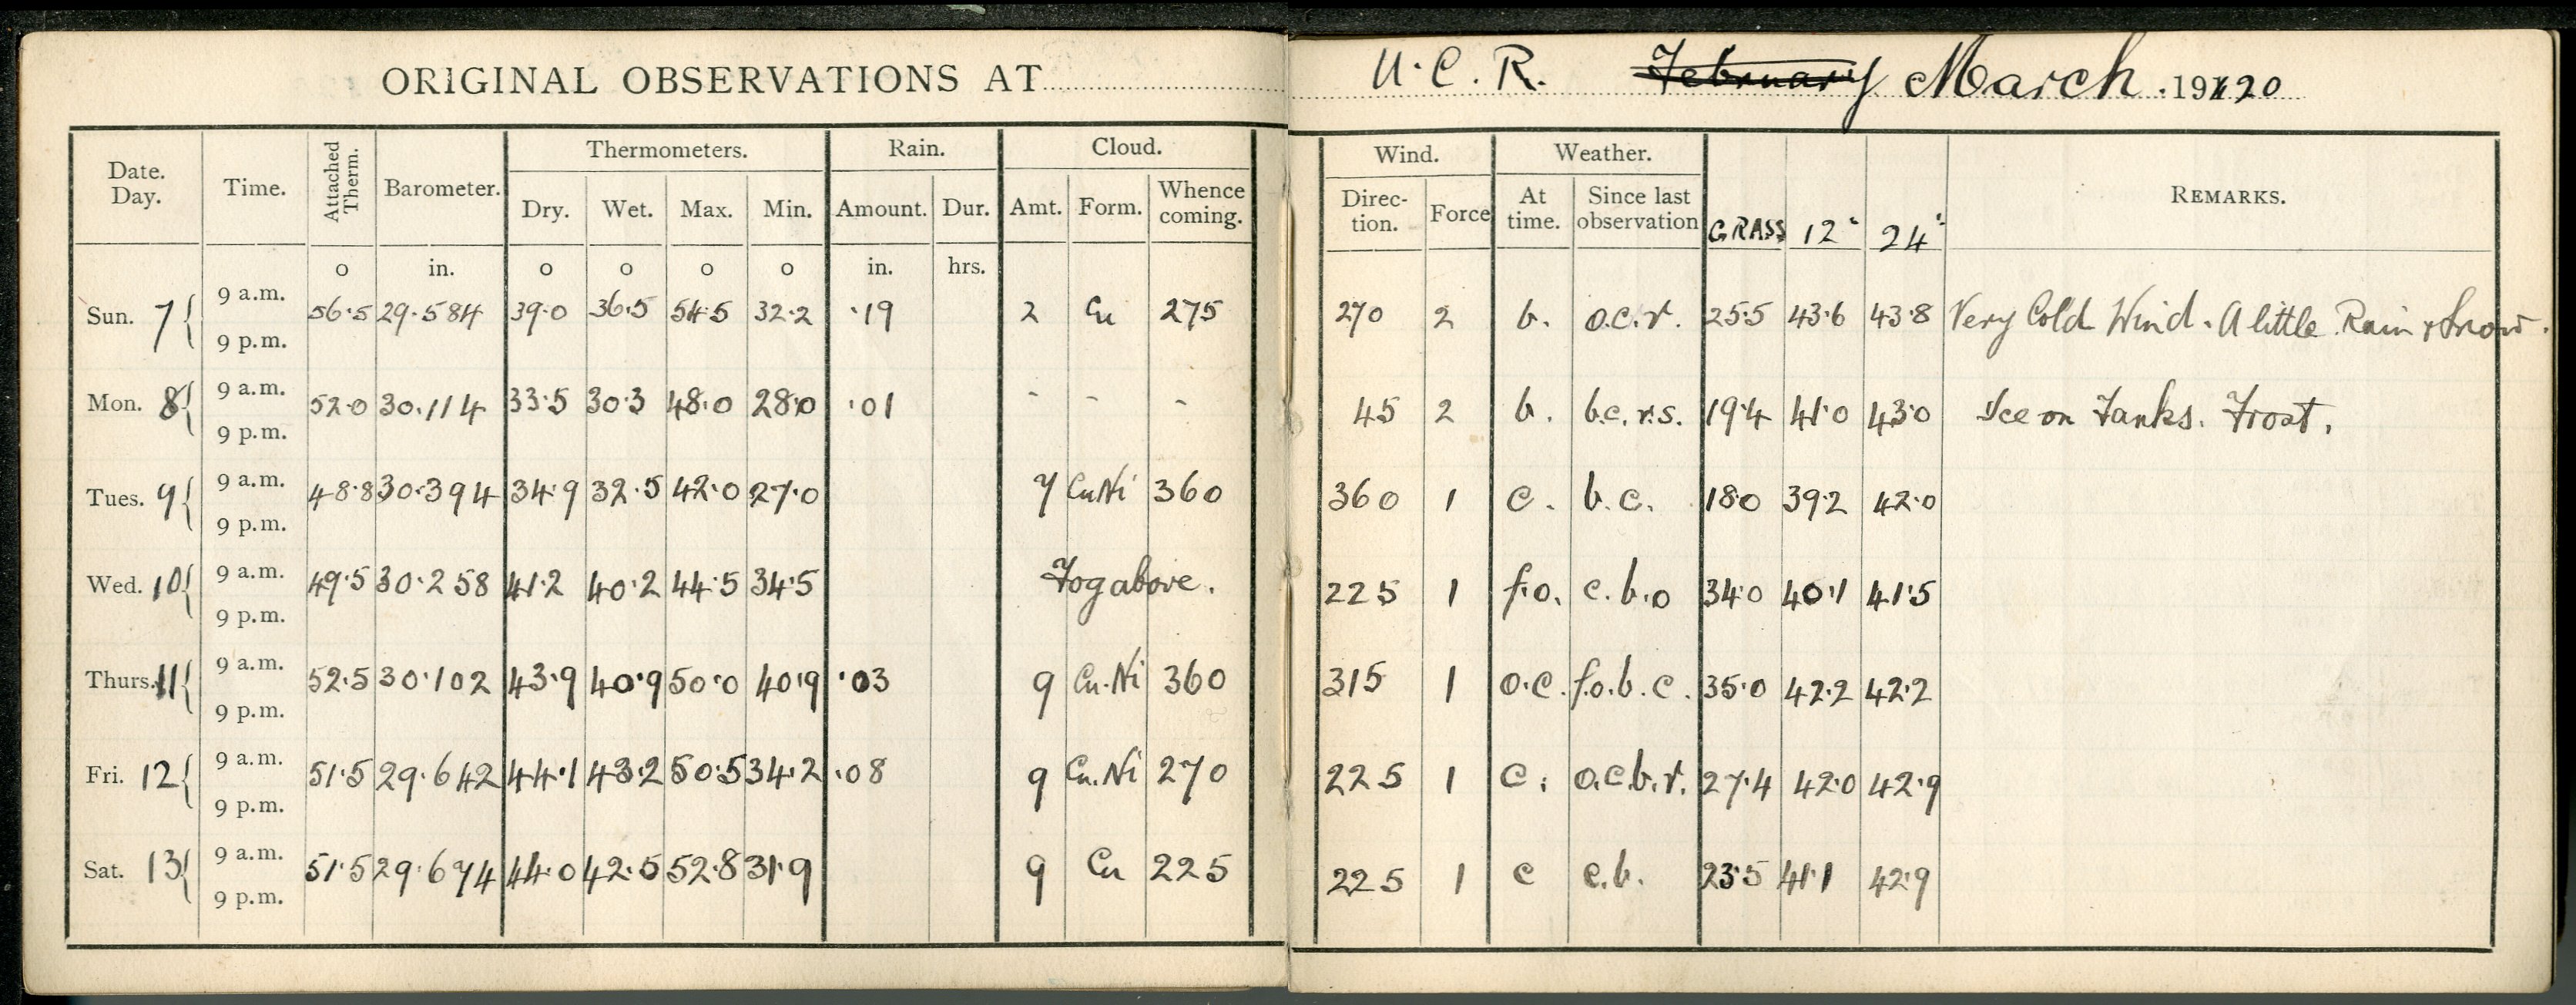 ORIGINAL OBSERVATIONS AT U.C.R. February March. 1920
Date. Day. Time. Attached Therm. Barometer. Thermometers. Rain. Cloud. Wind. Weather. REMARKS.
Dry. Wet. Max. Min. Amount. Dur. Amt. Form. Whence coming. Direc-tion. Force At time. Since last observation GRASS 12" 24"
o in. o o o o in. hrs.
Sun. 7 { 9 a.m. 56.5 29.584 39.0 36.5 54.5 32.2 .19 2 Cu 275 270 2 b. o.c.r. 25.5 43.6 43.8 Very Cold Wind. A little Rain & Snow.
9 p.m.
Mon. 8 { 9 a.m. 52.0 30.114 33.5 30.3 48.0 28.0 .01 - - - 45 2 b. b.c.r.s. 19.4 41.0 43.0 Ice on Tanks. Frost.
9 p.m.
Tues. 9 { 9 a.m. 48.8 30.394 34.9 32.5 42.0 27.0 7 CuNi 360 360 1 c. b.c. 18.0 39.2 42.0
9 p.m.
Wed. 10 { 9 a.m. 49.5 30.258 41.2 40.2 44.5 34.5 Fog above. 225 1 f.o. c.b.o 34.0 40.1 41.5
9 p.m.
Thurs. 11 { 9 a.m. 52.5 30.102 43.9 40.9 50.0 40.9 .03 9 Cu.Ni 360 315 1 o.c. f.o.b.c. 35.0 42.2 42.2
9 p.m.
Fri. 12 { 9 a.m. 51.5 29.642 44.1 43.2 50.5 34.2 .08 9 Cu.Ni 270 225 1 c. o.c.b.r. 27.4 42.0 42.9
9 p.m.
Sat. 13 { 9 a.m. 51.5 29.674 44.0 42.5 52.8 31.9 9 Cu 225 225 1 c c.b. 23.5 41.1 42.9
9 p.m.